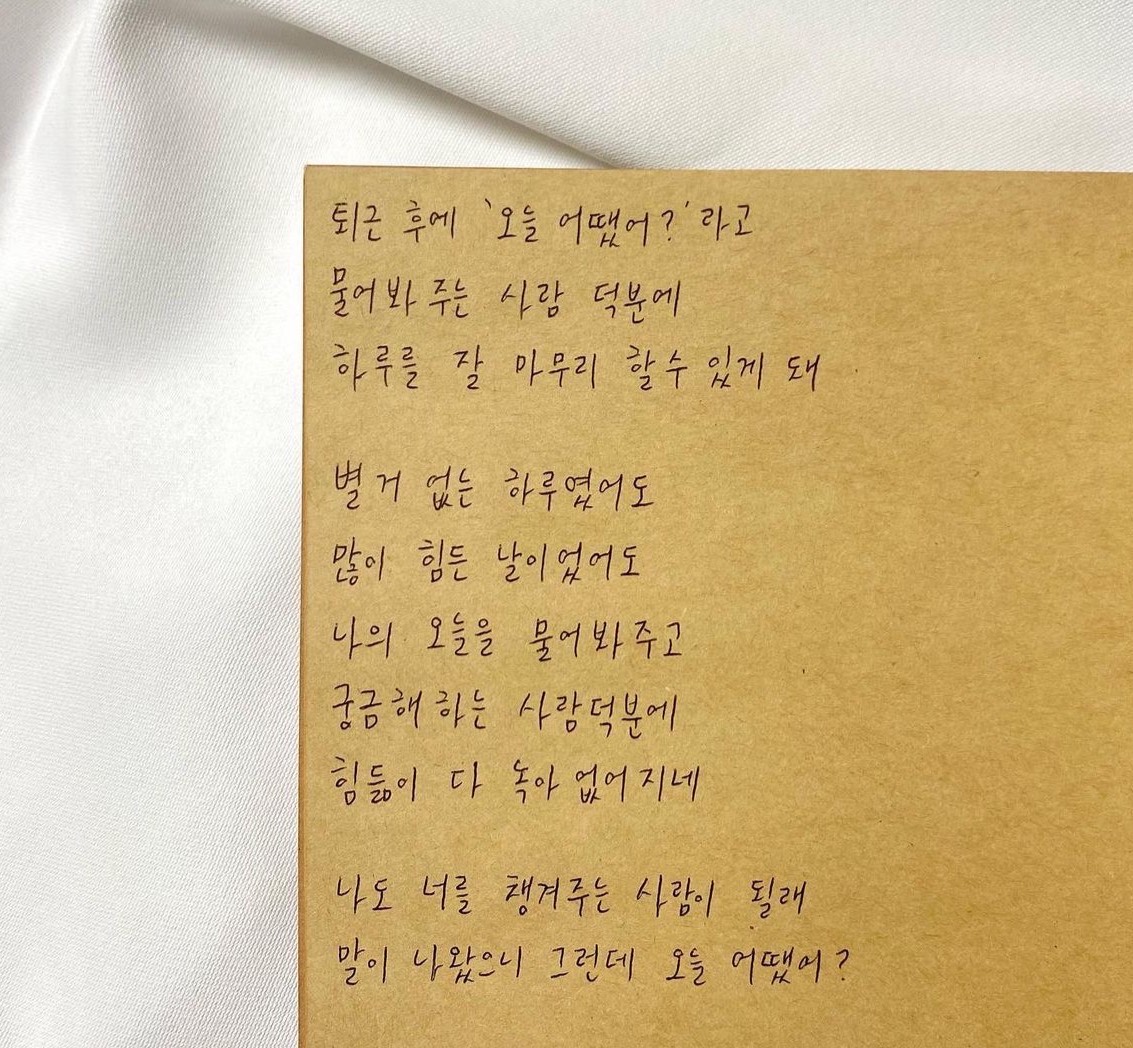 퇴근 후에 '오늘 어땠어?'라고
물어봐 주는 사람 덕분에
하루를 잘 마무리 할수 있게 돼
별 거 없는 하루였어도
많이 힘든 날이었어도
나의 오늘을 물어봐주고
궁금해 하는 사람덕분에
힘듦이 다 녹아 없어지네
나도 너를 챙겨주는 사람이 될래
말이 나왔으니 그런데 오늘 어땠어?